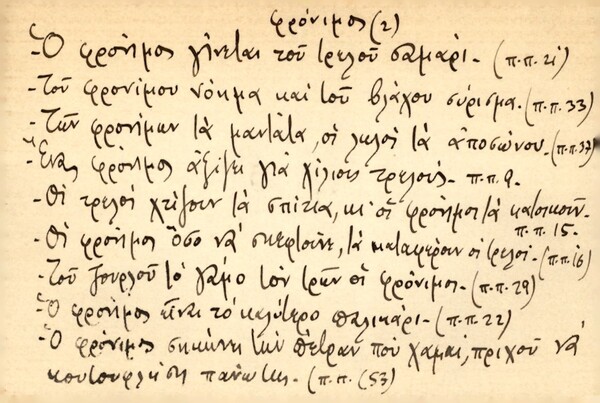 φρόνιμος (2)
- Ὁ φρόνιμος γίνεται τοῦ τρελοῦ σαμάρι. (π.π. 21)
- Τοῦ φρονίμου νόημα καὶ τοῦ βλάχου σύρισμα. (π.π. 33)
- Τῶν φρονίμων τὰ μαντάτα, οἱ λωλοὶ τὰ ἀποσώνου. (π.π. 37)
- Ἕνας φρόνιμος ἀξίζει γιὰ χίλιους τρελούς. π.π. 9.
- Οἱ τρελοὶ χτίζουν τὰ σπίτια, κι' οἱ φρόνιμοι τὰ κατοικοῦν.
π.π. 15.
- Οἱ φρόνιμοι ὅσο νὰ σκεφτοῦνε, τὰ καταφέρουν οἱ τρελοί. (π.π. 16)
- Τοῦ ζουρλοῦ τὸ γάμο τὸν τρῶν οἱ φρόνιμοι. (π.π. 29)
- Ὁ φρόνιμος εἶναι τὸ καλύτερο παλικάρι. (π.π. 22)
- Ὁ φρόνιμος σηκώνει τὴν πέτραν ποὺ χαμαί, πριχοῦ νὰ
κουτουφλήση πάνω της. (π.π. (53)